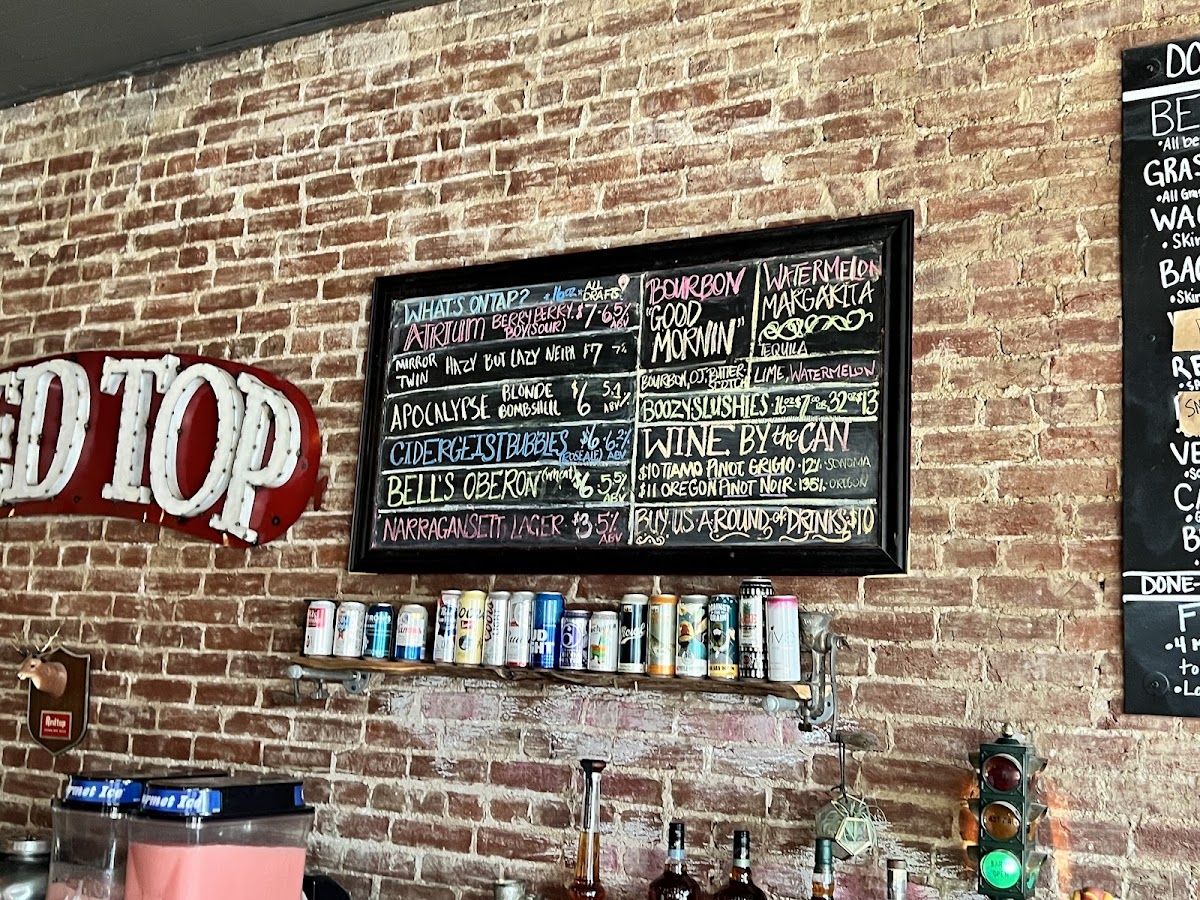 WHAT'S ON TAP? 16oz ALL DRAFTS!
ATRIUM BERRY BERRY BOY (SOUR) $7 • 6.5% ABV
MIRROR TWIN HAZY BUT LAZY NEIPA $7 7%
APOCALYPSE BLONDE BOMBSHELL $6 5.1% ABV
CIDERGEIST BUBBLES (ROSEALE) $6 • 6.2% ABV
BELL'S OBERON (wheat) $6 5.5% ABV
NARRAGANSETT LAGER $3 5% ABV
BOURBON
"GOOD
MORNIN"
BOURBON, OJ, BUTTERSCOTCH
WATERMELON
MARGARITA
TEQUILA
LIME, WATERMELON
BOOZY SLUSHIES • 16oz $7 OR 32oz $13
WINE BY the CAN
$10 TIAMO PINOT GRIGIO • 12% • SONOMA
$11 OREGON PINOT NOIR • 13.5% • OREGON
BUY US A ROUND of DRINKS • $10
ED TOP
Redtop
BUD
LIGHT
rmet Ice
urmet Ice
DO
BE
•All be
GRAS
•All Gra
WA
• Skin
BA
•Skin
RE
VE
C
B
DONE-
F
• 4
to
• L
OPEN